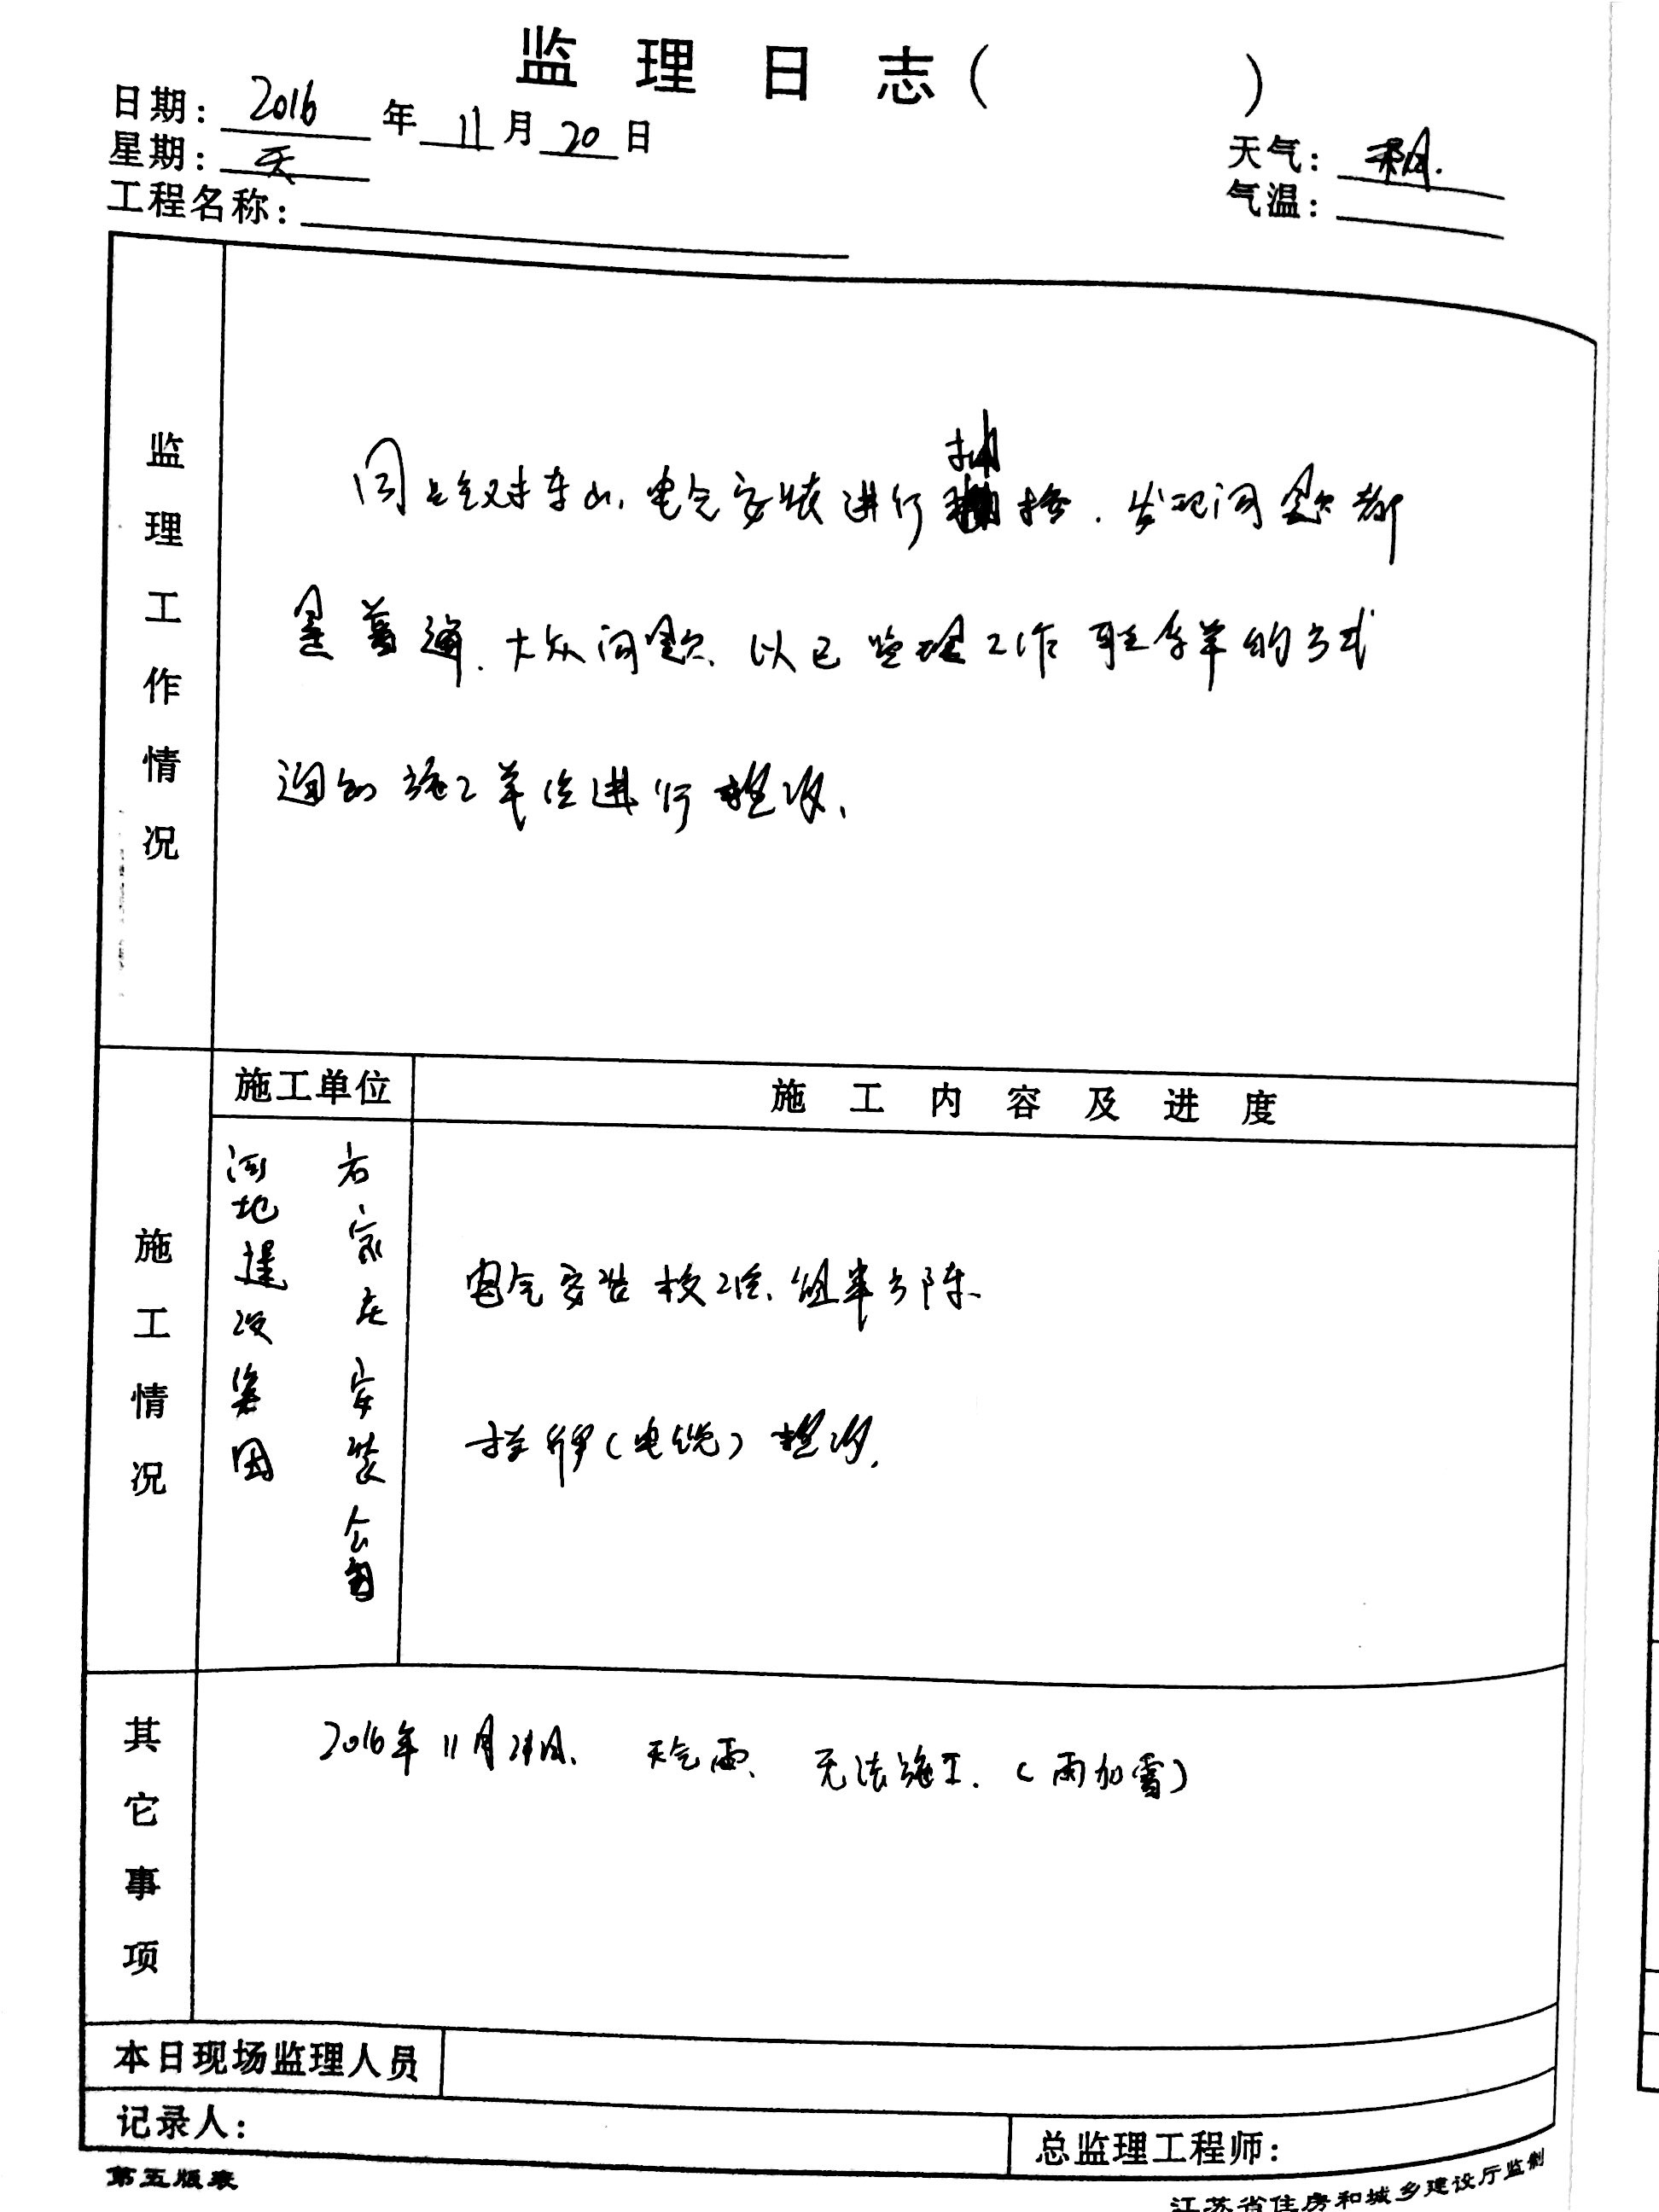 监理日志( )
日期: 2016 年 11 月 20 日
星期: 天
天气:
气温:
工程名称:
监理工作情况
同 对东山, 电气安装进行抽检. 发现问题都
是普通. 大众问题. 以已监理工作联系单的方式
通知施工单位进行整改.
施工情况
施工单位
施工内容及进度
河北建设集团
石家庄安装公司
电气安装校正. 组串方阵.
挂牌(电缆)整改.
其它事项
2016年11月 天气雨. 无法施工. (雨加雪)
本日现场监理人员
记录人:
总监理工程师:
第五版表
江苏省住房和城乡建设厅监制